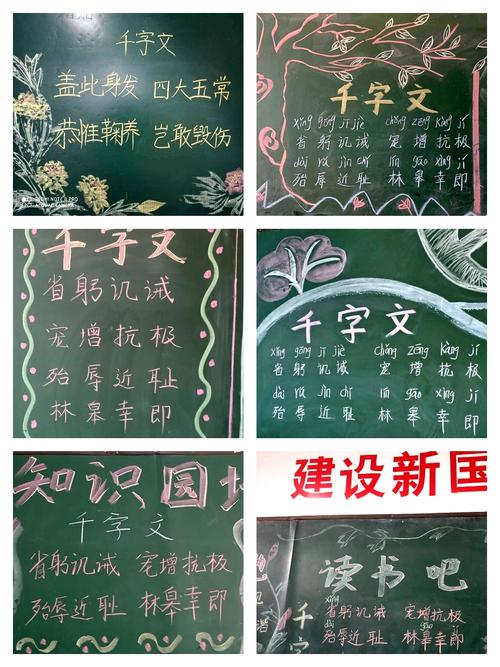 千字文
盖此身发 四大五常
恭惟鞠养 岂敢毁伤
千字文
xǐng gōng jī jiè chǒng zēng kàng jí
省躬讥诫 宠增抗极
dài rǔ jìn chǐ lín gāo xìng jí
殆辱近耻 林皋幸即
千字文
省躬讥诫
宠增抗极
殆辱近耻
林皋幸即
千字文
xǐng gōng jī jiè chǒng zēng kàng jí
省躬讥诫 宠增抗极
dài rǔ jìn chǐ lín gāo xìng jí
殆辱近耻 林皋幸即
知识园地
千字文
省躬讥诫 宠增抗极
殆辱近耻 林皋幸即
建设新国
读书吧
千字
xǐng
省躬讥诫 宠增抗极
dài gāo
殆辱近耻 林皋幸即